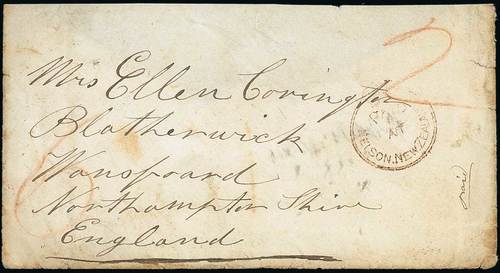 2
Mrs Ellen Covington
Blatherwick
Wansfoard
Northampton Shire
England
NELSON. NEW ZEALAND
paid